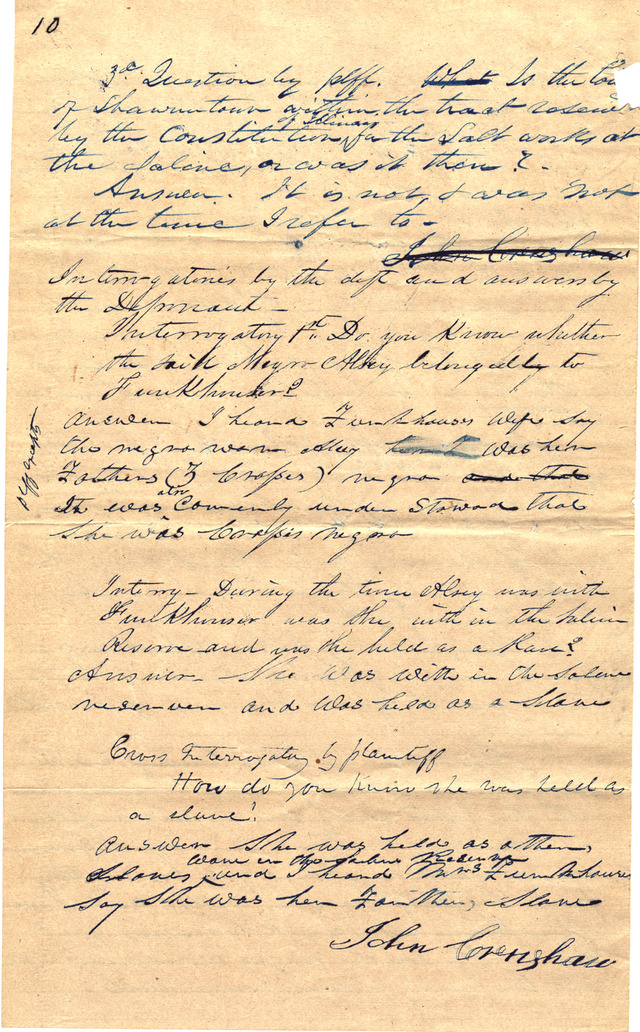 10
3d Question by plff. What Is the tow
of Shawneetown within the tract reserve
of Salines
by the Constitution, for the Salt works at
the Saline, or was it then?
Answer. It is not, & was not
at the time I refer to -
John Crenshaw
Interrogatories by the deft and answers by
the Deponant -
Interrogatory 1st. Do you Know whether
the said Negro Alsey belonged to
Funkhouser?
Answer I heard Funkhouses Wife Say
the negro warn Alsey was her
Plff excepts
Fathers (Z Crosses) negro and that
also
It was Comenly under Stowod that
She was Crosses negro
Interry - During the time Alsey was with
Funkhouser was she with in the Saline
Reserve and was she held as a Slave?
Answer - She Was with in the Salene
reserven and Was held as a Slave
Cross Interrogatory by plaintiff
How do you know she was held as
a slave?
Answer She was held as other,
ware in the Saline Reserve
Slaves, and I heard Mrs Funkhouser
Say She was her Fauther, Slave
John Crenshaw